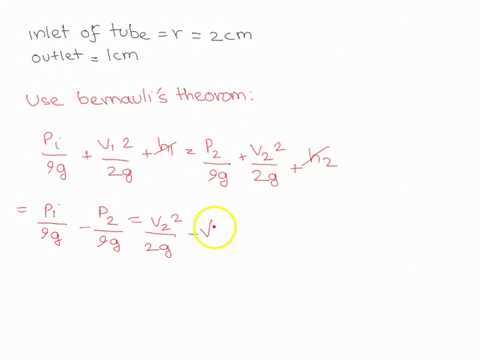 inlet of tube = r = 2cm
outlet = 1cm
Use bernauli's theorom:
Pi/ρg + V1²/2g + h1 = P2/ρg + V2²/2g + h2
= Pi/ρg - P2/ρg = V2²/2g - V